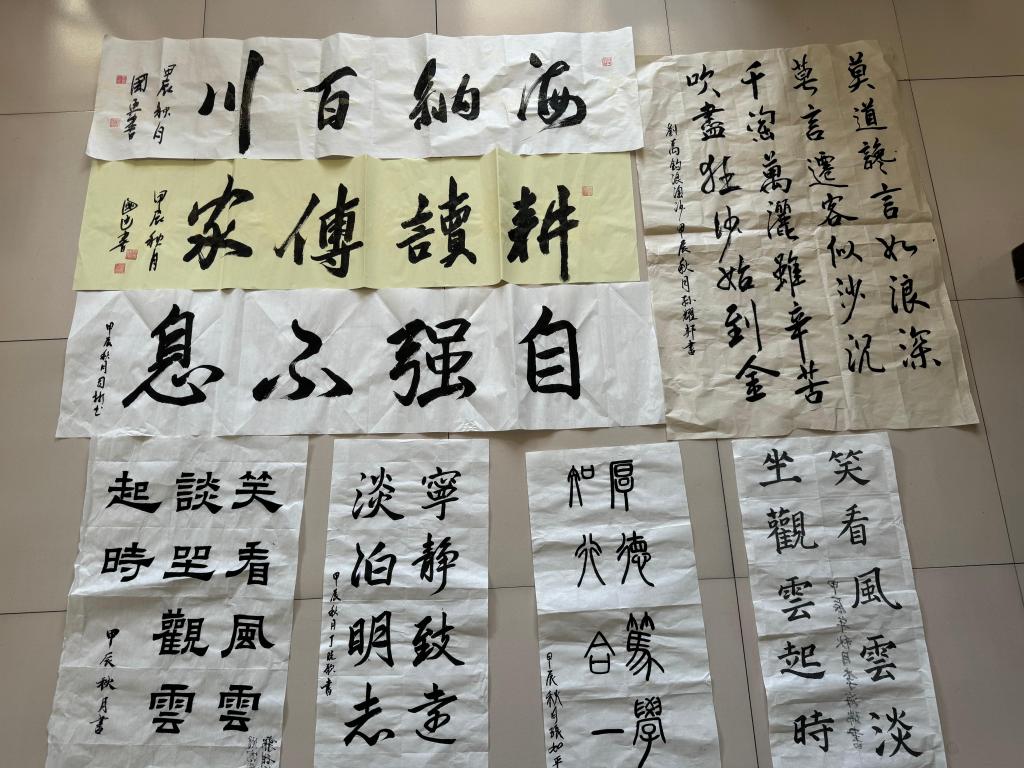 海納百川
甲辰秋月
國書
耕讀傳家
甲辰秋月
書
自强不息
甲辰秋月国
莫道讒言如浪深
莫言遷客似沙沉
千淘萬灑雖辛苦
吹盡狂沙始到金
劉禹錫浪淘沙 甲辰秋月孫耀軒書
笑看風雲
談坐觀雲
起時
甲辰秋月書
寧静致遠
淡泊明志
甲辰秋月丁書
厚德篤學
知行合一
甲辰秋月張如平
笑看風雲淡
坐觀雲起時